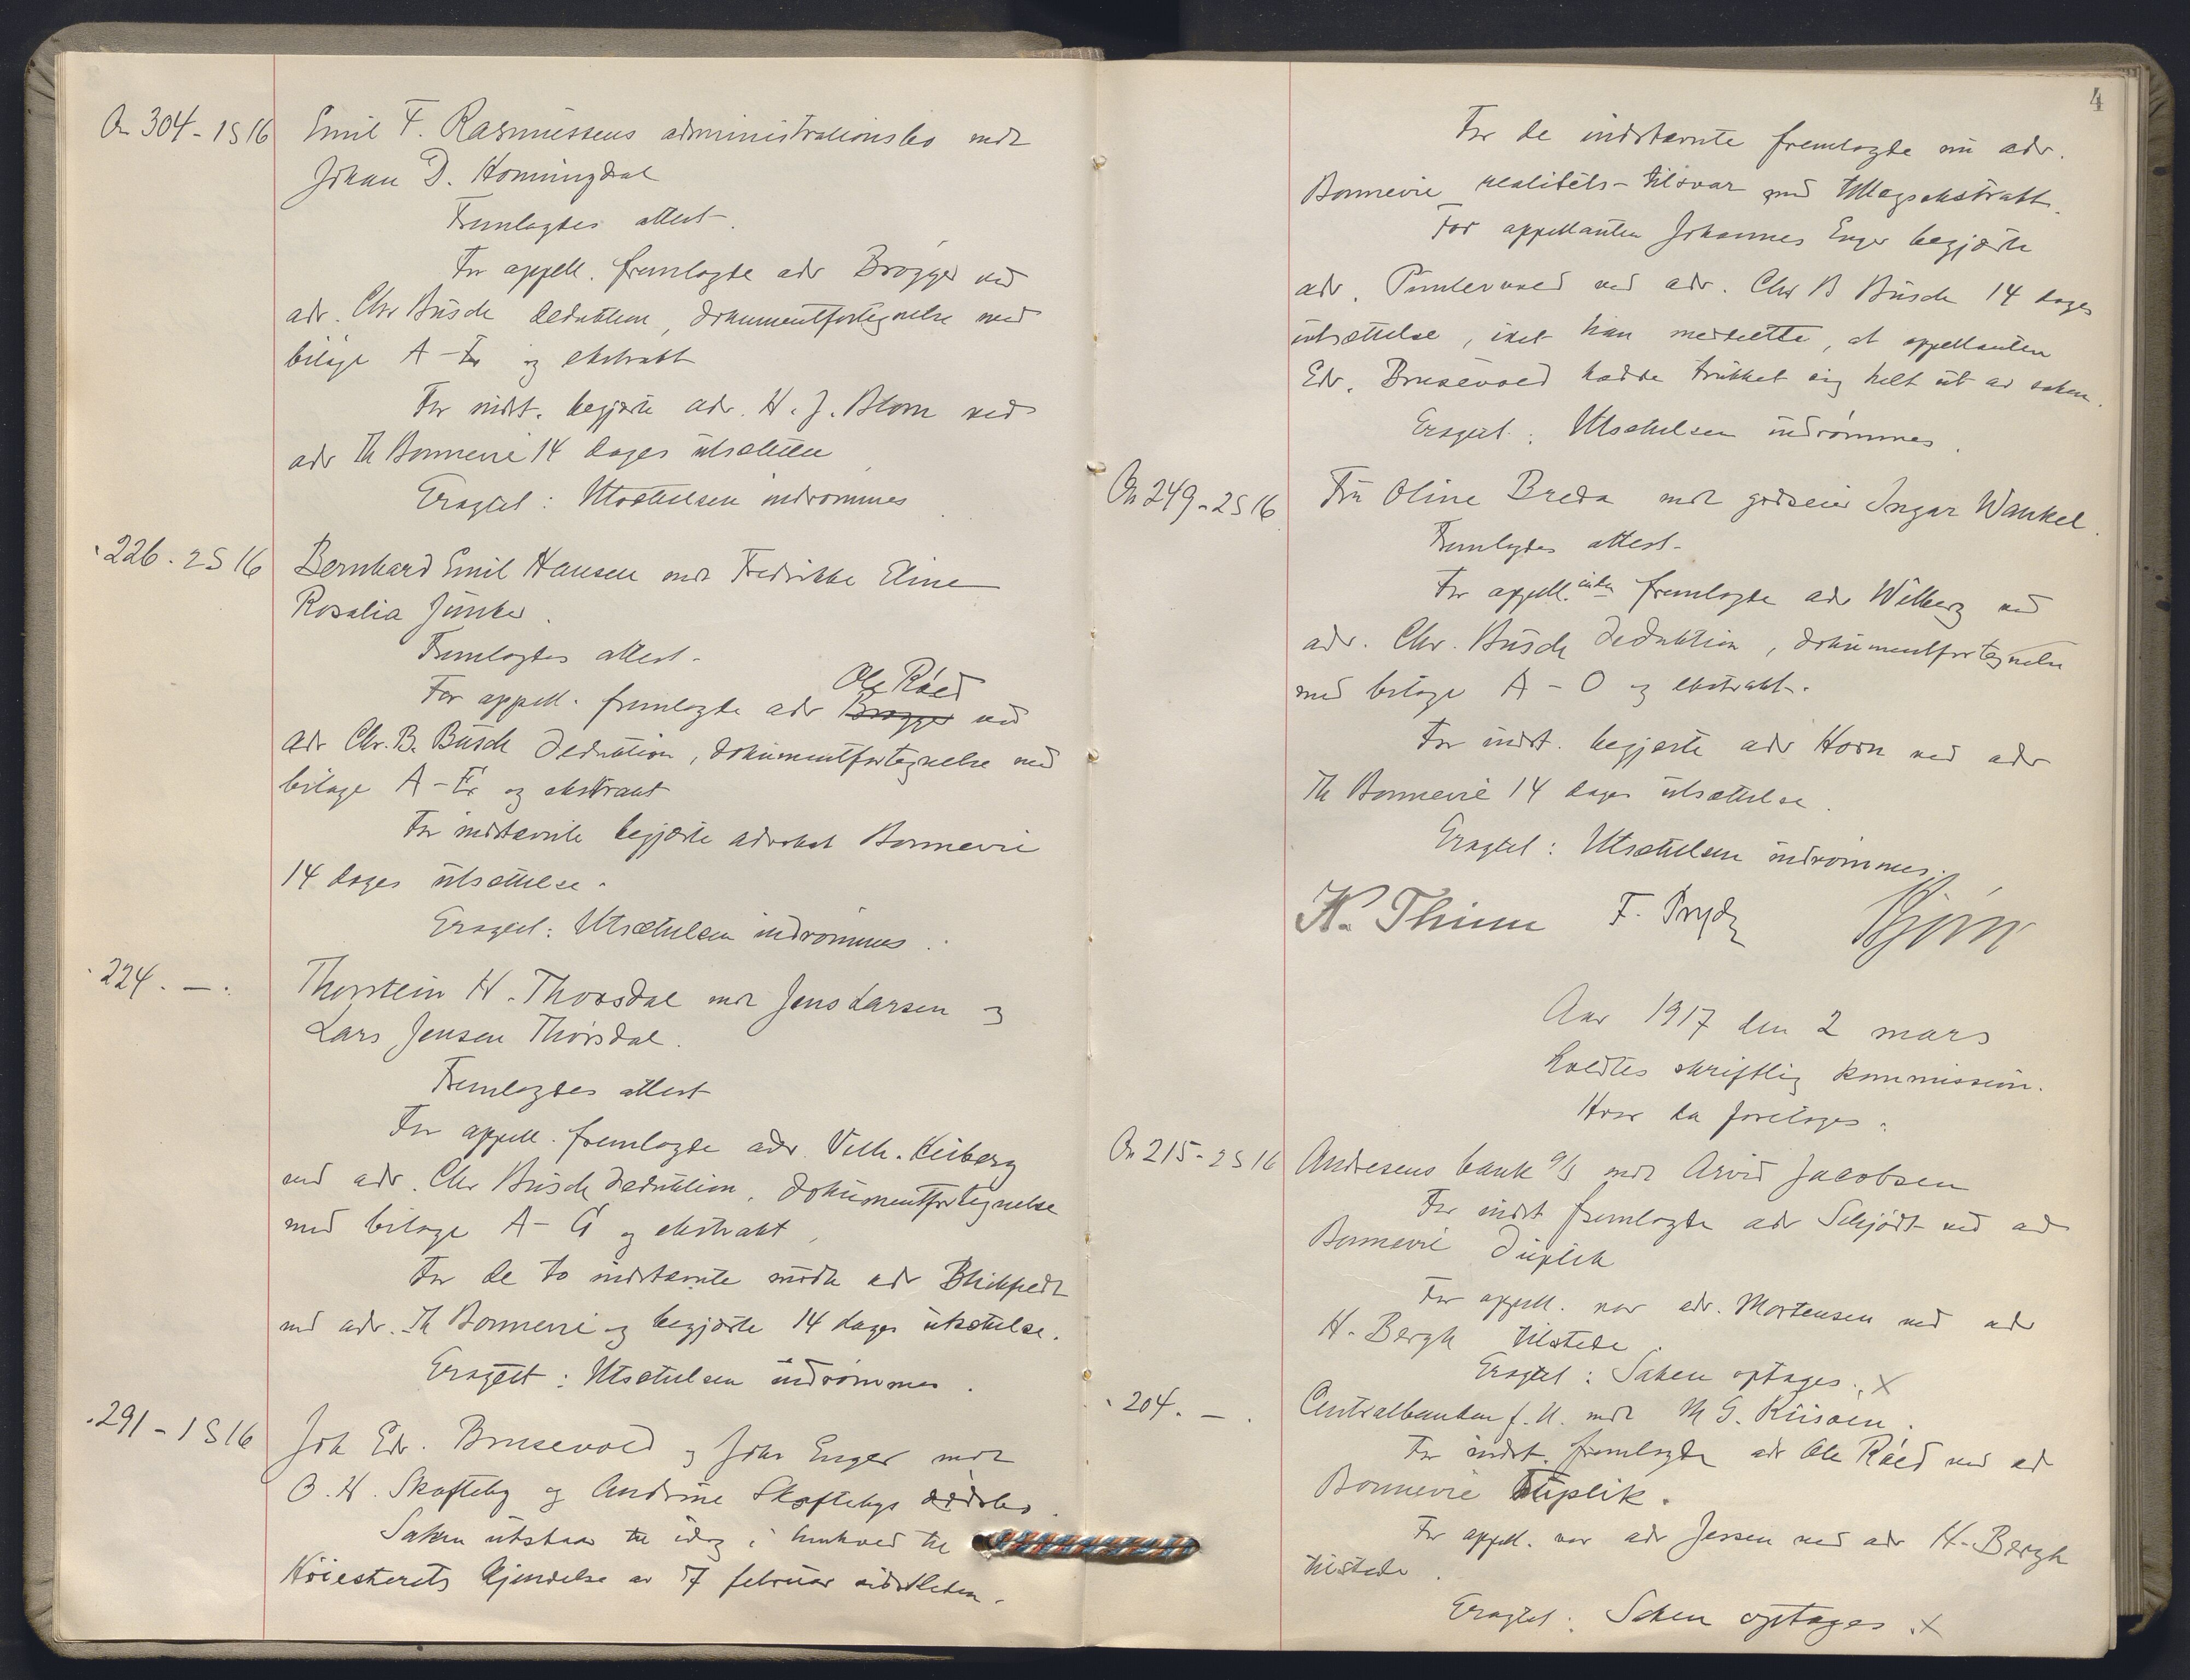 On 304 - 1 S 16 Emil F. Rasmussens administrationsbo mot
Johan D. Homningdal
Fremlagdes attest.
For appell. fremlagde adv Brøgger ved
adv. Chr Busch deduktion, dokumentfortegnelse med
bilage A - E og ekstrakt
For indst. begjærte adv. H. J. Blom ved
adv Th Bonnevie 14 dages utsættelse
Eragtet: Utsættelsen indrømmes
" 226 - 2 S 16 Bernhard Emil Hansen mot Fredrikke Eline
Rosalia Junker.
Fremlagdes attest.
Ole Røed
For appell. fremlagde adv Brøgger ved
adv Chr. B. Busch deduktion, dokumentfortegnelse med
bilage A - E og ekstrakt
For indstævnte begjærte advokat Bonnevie
14 dages utsættelse.
Eragtet: Utsættelsen indrømmes.
" 224. — . Thorstein H. Thorsdal mot Jens Larsen og
Lars Jensen Thorsdal.
Fremlagdes attest
For appell. fremlagde adv. Vilh. Heiberg
ved adv. Chr Busch deduktion, dokumentfortegnelse
med bilage A - G og ekstrakt,
For de to indstævnte møtte adv Blickfeldt
ved adv. Th Bonnevie og begjærte 14 dages utsættelse.
Eragtet: Utsættelsen indrømmes.
" 291 - 1 S 16 Joh Edv. Brusevold og Johs Enger mot
O. H. Skofteby og Andrine Skoftebys dødsbo.
Saken utstaar til idag i henhold til
Høiesterets kjendelse av 17 februar sidstleden.
4
For de indstævnte fremlagde nu adv.
Bonnevie realitets-tilsvar med tillægsekstrakt.
For appellanten Johannes Enger begjærte
adv. Puntervold ved adv. Chr B Busch 14 dages
utsættelse, idet han meddelte, at appellanten
Edv. Brusevold hadde trukket sig helt ut av saken.
Eragtet: Utsættelsen indrømmes.
On 249 - 2 S 16 Fru Oline Breda mot godseier Ingar Wankel.
Fremlagdes attest.
For appell.inden fremlagde adv Wilberg ved
adv. Chr. Busch deduktion, dokumentfortegnelse
med bilage A - O og ekstrakt.
For indst. begjærte adv Horn ved adv
Th Bonnevie 14 dages utsættelse.
Eragtet: Utsættelsen indrømmes.
K. Thinn F. Prydz Bjørn
Aar 1917 den 2 mars
holdtes skriftlig kommission.
Hvor da foretages:
On 215 - 2 S 16 Andresens bank a/s mot Arvid Jacobsen
For indst fremlagde adv Schjødt ved adv
Bonnevie Duplik
For appell. var adv. Mortensen ved adv
H. Bergh tilstede.
Eragtet: Saken optages. X
" 204. — . Centralbanken f. N. mot M G. Kiisøen.
For indst. fremlagde adv Ole Røed ved adv
Bonnevie Duplik.
For appell. var adv Jessen ved adv H. Bergh
tilstede.
Eragtet: Saken optages. X